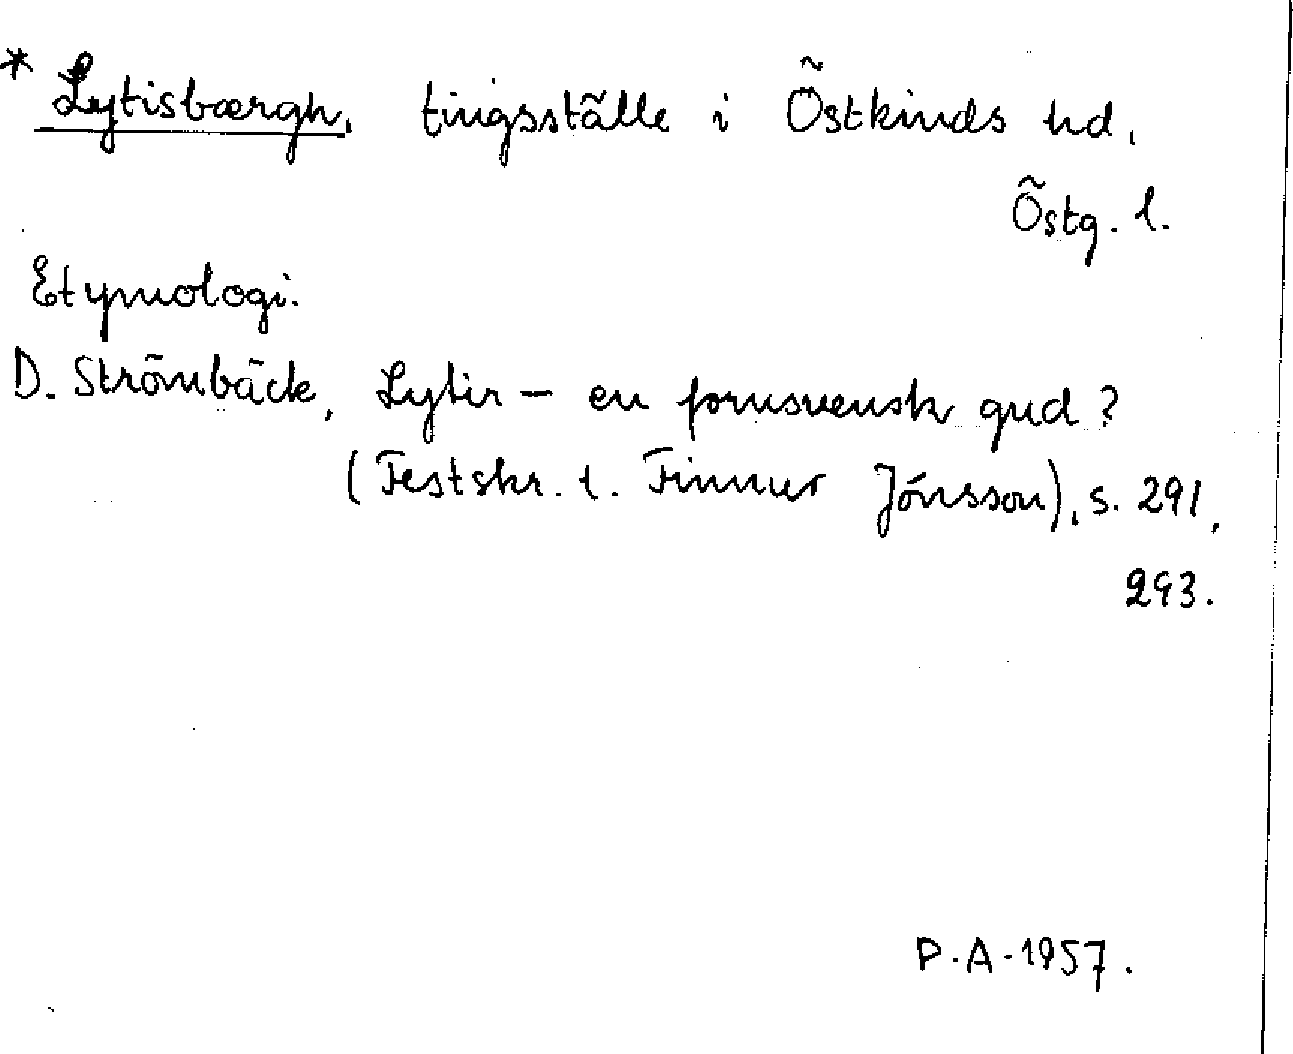 * Lytisbærgh, tingsställe i Östkinds hd,
Östg. l.
Etymologi.
D. Strömbäck, Lytir – en fornsvensk gud?
(Festskr. t. Finnur Jónsson), s. 291,
293.
P.A. 1957.